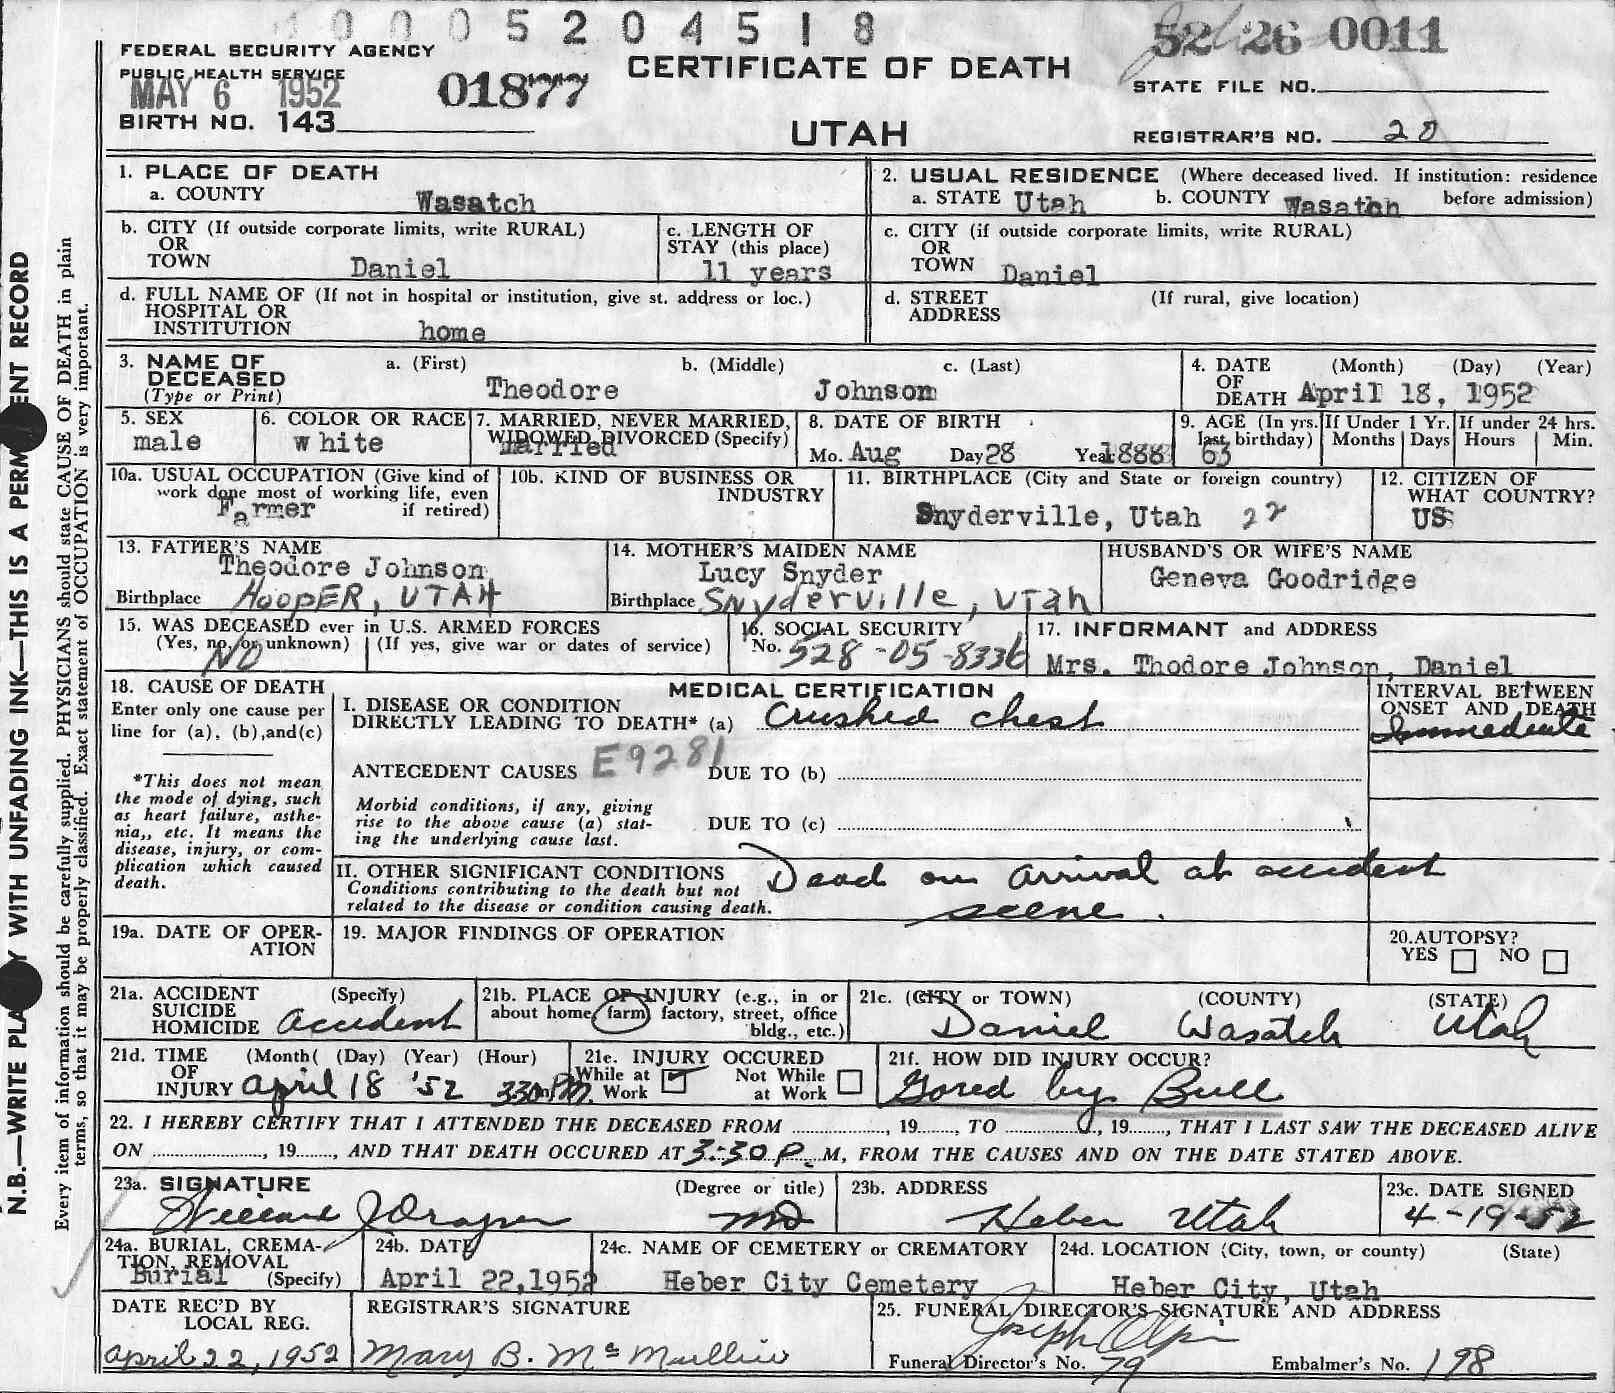 0005204518
52 26 0011
FEDERAL SECURITY AGENCY
PUBLIC HEALTH SERVICE
MAY 6 1952
01877
CERTIFICATE OF DEATH
STATE FILE NO.
BIRTH NO. 143
UTAH
REGISTRAR'S NO. 20
N.B.—WRITE PLA Y WITH UNFADING INK—THIS IS A PERM ENT RECORD
Every item of information should be carefully supplied. PHYSICIANS should state CAUSE OF DEATH in plain
terms, so that it may be properly classified. Exact statement of OCCUPATION is very important.
1. PLACE OF DEATH
a. COUNTY Wasatch
2. USUAL RESIDENCE (Where deceased lived. If institution: residence
a. STATE Utah b. COUNTY Wasatch before admission)
b. CITY (If outside corporate limits, write RURAL)
OR
TOWN Daniel
c. LENGTH OF
STAY (this place)
11 years
c. CITY (if outside corporate limits, write RURAL)
OR
TOWN Daniel
d. FULL NAME OF (If not in hospital or institution, give st. address or loc.)
HOSPITAL OR
INSTITUTION home
d. STREET (If rural, give location)
ADDRESS
3. NAME OF a. (First) b. (Middle) c. (Last)
DECEASED
(Type or Print) Theodore Johnson
4. DATE (Month) (Day) (Year)
OF
DEATH April 18, 1952
5. SEX
male
6. COLOR OR RACE
white
7. MARRIED, NEVER MARRIED,
WIDOWED, DIVORCED (Specify)
married
8. DATE OF BIRTH
Mo. Aug Day 28 Year 1888
9. AGE (In yrs. last birthday)
63
If Under 1 Yr.
Months Days
If under 24 hrs.
Hours Min.
10a. USUAL OCCUPATION (Give kind of
work done most of working life, even
if retired)
Farmer
10b. KIND OF BUSINESS OR
INDUSTRY
11. BIRTHPLACE (City and State or foreign country)
Snyderville, Utah 22
12. CITIZEN OF
WHAT COUNTRY?
US
13. FATHER'S NAME
Theodore Johnson
Birthplace HOOPER, UTAH
14. MOTHER'S MAIDEN NAME
Lucy Snyder
Birthplace Snyderville, Utah
HUSBAND'S OR WIFE'S NAME
Geneva Goodridge
15. WAS DECEASED ever in U.S. ARMED FORCES
(Yes, no, or unknown) (If yes, give war or dates of service)
NO
16. SOCIAL SECURITY
No. 528-05-8336
17. INFORMANT and ADDRESS
Mrs. Thodore Johnson, Daniel
18. CAUSE OF DEATH
Enter only one cause per
line for (a), (b),and(c)
*This does not mean
the mode of dying, such
as heart failure, asthe-
nia,, etc. It means the
disease, injury, or com-
plication which caused
death.
MEDICAL CERTIFICATION
I. DISEASE OR CONDITION
DIRECTLY LEADING TO DEATH* (a) Crushed chest
INTERVAL BETWEEN
ONSET AND DEATH
Immediate
ANTECEDENT CAUSES E9281 DUE TO (b)
Morbid conditions, if any, giving
rise to the above cause (a) stat-
ing the underlying cause last.
DUE TO (c)
II. OTHER SIGNIFICANT CONDITIONS
Conditions contributing to the death but not
related to the disease or condition causing death.
Dead on arrival at accident
scene.
19a. DATE OF OPER-
ATION
19. MAJOR FINDINGS OF OPERATION
20.AUTOPSY?
YES NO
21a. ACCIDENT (Specify)
SUICIDE
HOMICIDE accident
21b. PLACE OF INJURY (e.g., in or
about home, farm, factory, street, office
bldg., etc.)
21c. (CITY or TOWN) (COUNTY) (STATE)
Daniel Wasatch Utah
21d. TIME (Month( (Day) (Year) (Hour)
OF
INJURY april 18 '52 330 PM.
21e. INJURY OCCURED
While at Work
Not While at Work
21f. HOW DID INJURY OCCUR?
Gored by Bull
22. I HEREBY CERTIFY THAT I ATTENDED THE DECEASED FROM , 19 , TO , 19 , THAT I LAST SAW THE DECEASED ALIVE
ON , 19 , AND THAT DEATH OCCURED AT 3:30 P. M, FROM THE CAUSES AND ON THE DATE STATED ABOVE.
23a. SIGNATURE (Degree or title)
Draper MD
23b. ADDRESS
Heber Utah
23c. DATE SIGNED
4-19-52
24a. BURIAL, CREMA-
TION, REMOVAL
Burial (Specify)
24b. DATE
April 22,1952
24c. NAME OF CEMETERY or CREMATORY
Heber City Cemetery
24d. LOCATION (City, town, or county) (State)
Heber City, Utah
DATE REC'D BY
LOCAL REG.
april 22, 1952
REGISTRAR'S SIGNATURE
Mary B. McMullin
25. FUNERAL DIRECTOR'S SIGNATURE AND ADDRESS
Joseph Olpin
Funeral Director's No. 79 Embalmer's No. 198